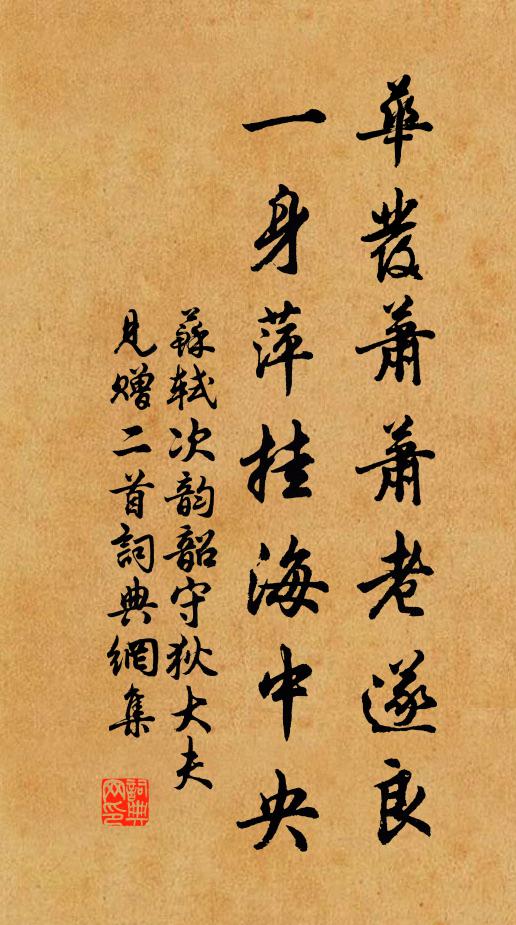 華發蕭蕭老遂良
一身萍挂海中央
蘇軾次韵韶守狄大夫
見贈二首詞典網集
詞典网印